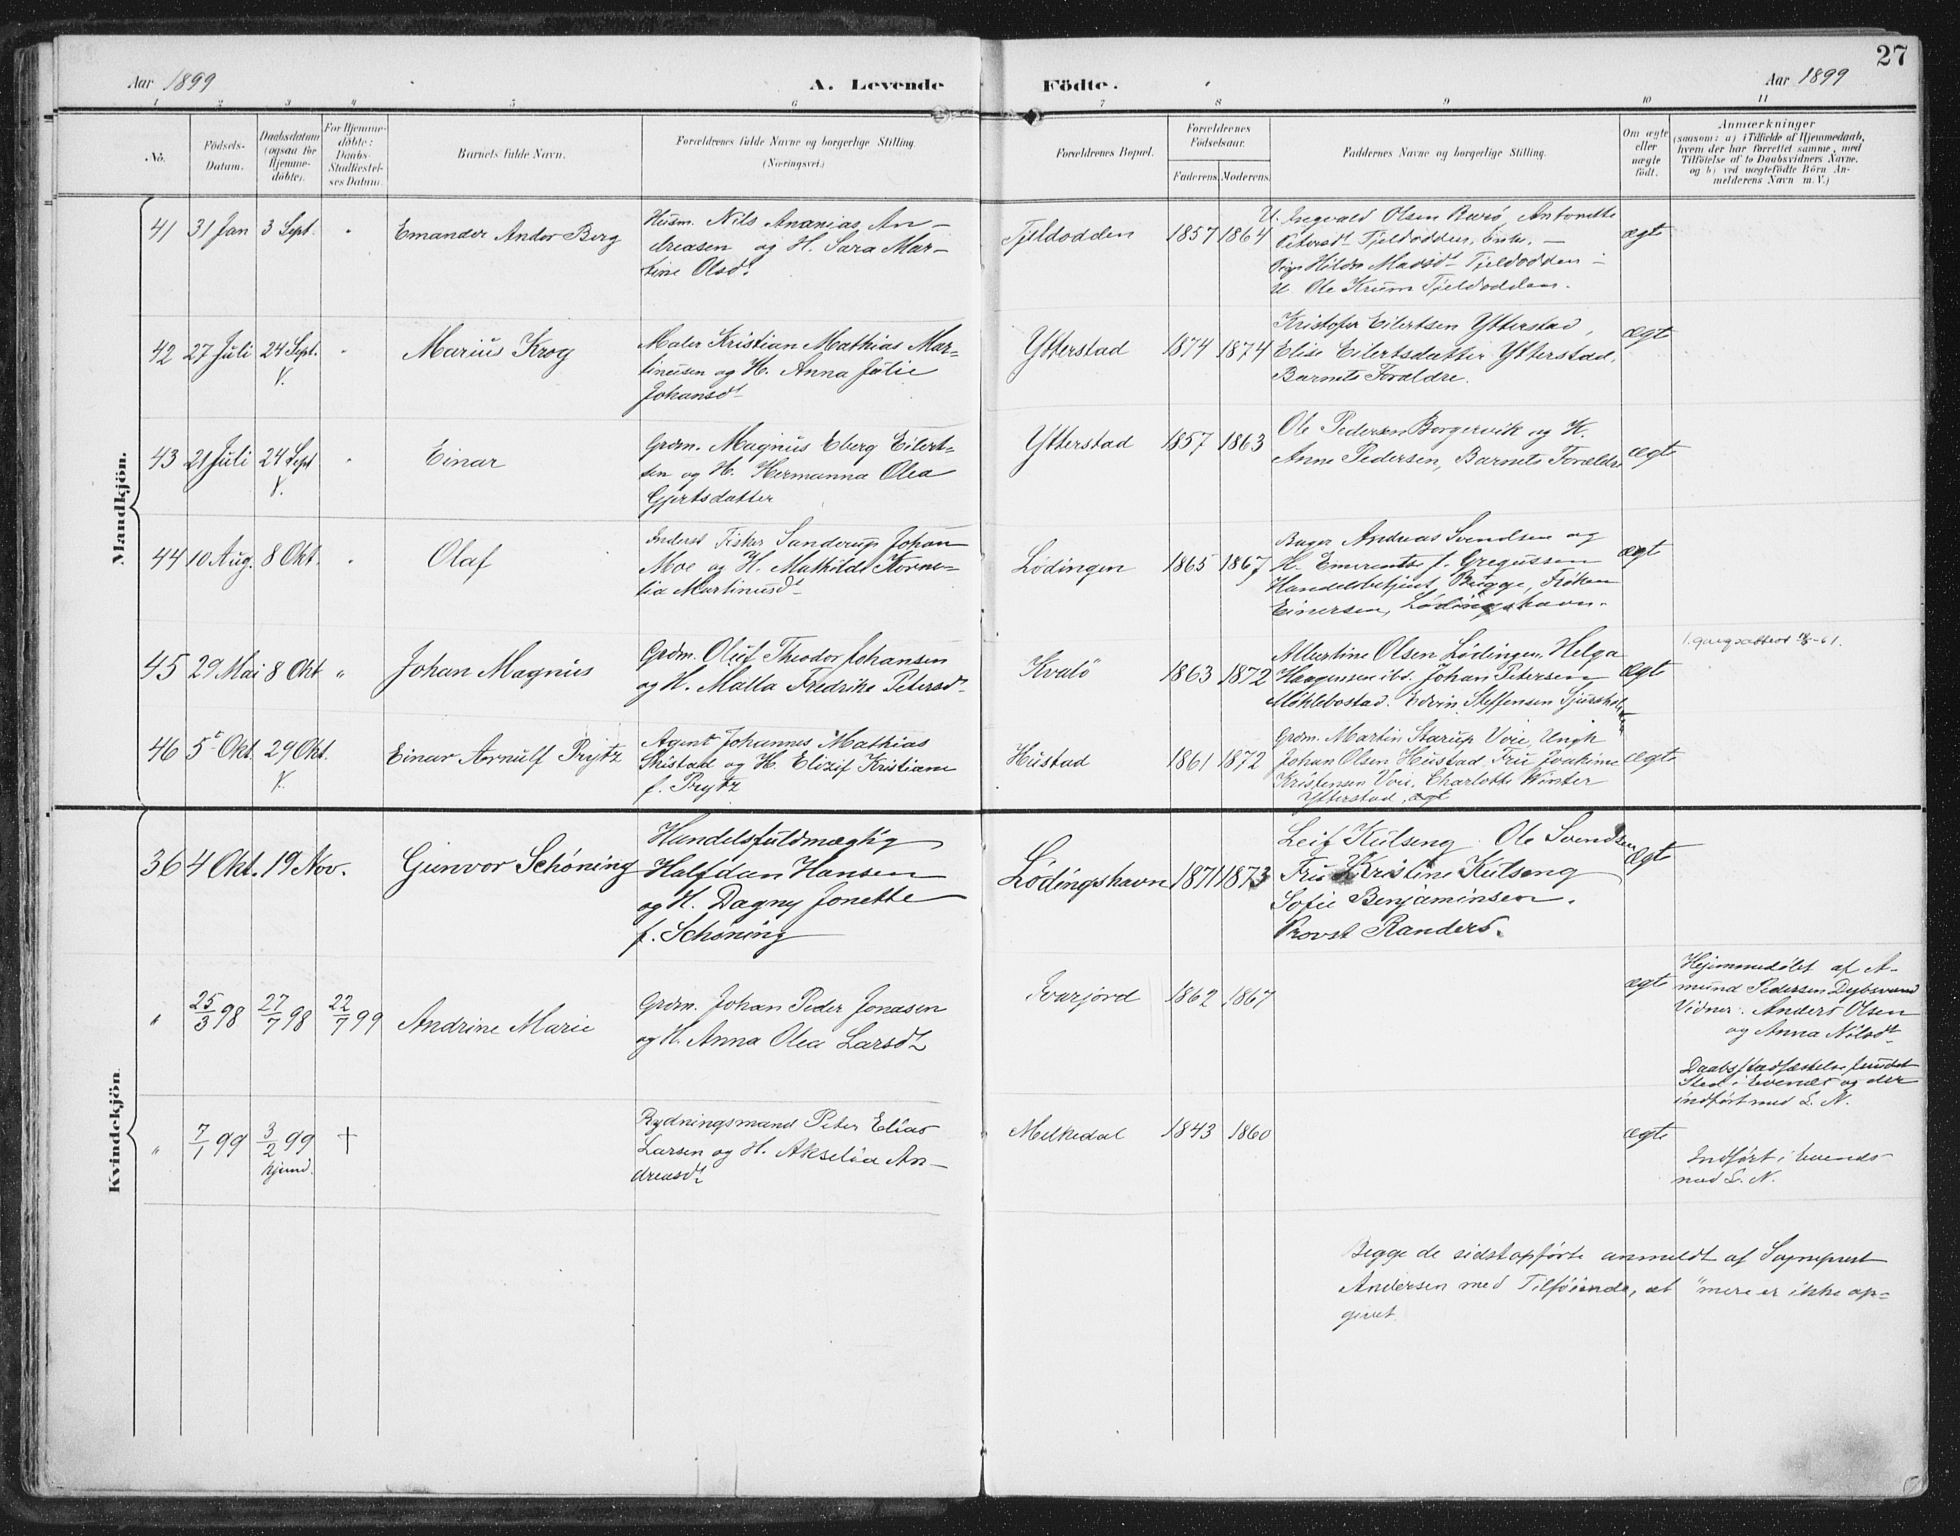 27
Aar 1899
A. Levende Födte.
Aar 1899
1 2 3 4 5 6 7 8 9 10 11
No.
Födsels-Datum.
Daabsdatum (ogsaa for Hjemme-döbte).
For Hjemme-döbte: Daabs-Stadfæstel-ses Datum.
Barnets fulde Navn.
Forældrenes fulde Navne og borgerlige Stilling. (Næringsvei.)
Forældrenes Bopæl.
Forældrenes Födselsaar.
Faderens. Moderens.
Faddernes Navne og borgerlige Stilling.
Om ægte eller uægte födt.
Anmærkninger
(saasom: a) i Tilfælde af Hjemmedaab,
hvem der har forrettet samme, med
Tilföielse af to Daabsvidners Navne,
og b) ved uægtefödte Börn An-
melderens Navn m. V.)
Mandkjön.
41 31 Jan 3 Sept. " Emander Andor Berg
Husm. Nils Ananias An-
dreasen og H. Sara Mar-
tine Olsd.
Tjeldodden 1857 1864
U. Ingvald Olsen Barø, Antonette
Petersdt Tjeldodden, Enke, –
Pige Hilda Madsdt Tjeldodden –
U. Ole Krum Tjeldodden.
ægte
42 27 Juli 24 Sept. V. " Marius Krog
Maler Kristian Mathias Mar-
tinusen og H. Anna Julie
Johansdt
Ytterstad 1874 1874
Kristofer Eilertsen Ytterstad,
Elise Eilertsdatter Ytterstad,
Barnets Forældre.
ægte
43 21 Juli 24 Sept V. " Einar
Grdm. Magnus Eberg Eilert-
sen og H. Hermanna Olea
Gjertsdatter
Ytterstad 1857 1863
Ole Pedersen Borgervik og H.
Anne Pedersen, Barnets Forældre
ægte
44 10 Aug. 8 Okt. " Olaf
Inderst Fisker Sanderup Johan
Moe og H. Mathilde Korne-
lia Martinusdt
Lødingen 1865 1867
Bager Andreas Svendsen og
H. Emerentse f. Gregussen
Handelsbetjent Bugge, Frøken
Einersen, Lødingshavn.
ægte
45 29 Mai 8 Okt " Johan Magnus
Grdm. Oluf Theodor Johansen
og H. Malla Fredrike Petersdt
Kvalö 1863 1872
Albertine Olsen Lødingen, Helga
Haagensen ibd. Johan Petersen
Møklebostad. Edvin Steffensen Sjursholmen
ægte
46 5 Okt. 29 Okt. V. Einar Arnulf Prytz
Agent Johannes Mathias
Skistad og H. Elizif Kristiane
f. Prytz
Hustad 1861 1872
Grdm. Martin Starup Voie, Ungk
Johan Olsen Hustad, Fru Joakime
Kristensen Voie, Charlotte Winter
Ytterstad, ægt
ægte
Kvindekjön
36 4 Okt. 19 Nov. Gunvor Schöning
Handelsfuldmægtig
Halfdan Hansen
og H. Dagny Jonette
f. Schöning
Lödingshavn 1871 1873
Leif Kulseng. Ole Svendsen
Fru Kristine Kulseng
Sofie Benjaminsen.
Provst Randers.
ægte
" 25/3 98 27/7 98 22/7 99 Andrine Marie
Grdm. Johan Peder Jonasen
og H. Anna Olea Larsdt
Ivarjord 1862 1867
ægte
Hjemmedøbt af A-
mund Pedersen Dybsvand
Vidner: Anders Olsen
og Anna Nilsdt
Daabsstadfæstelse fundet
Sted i Evenes og der
indført med L. N.
" 7/1 99 3/2 99 hjemd. †
Rydningsmand Peter Elias
Larsen og H. Akselia An-
dreasdt
Melkedal 1843 1860
ægte
Indført i Evenes
med L. N.
Begge de sidstopførte anmeldt af Sogneprest
Andersen med Tilføiende, at "mere er ikke op-
givet.